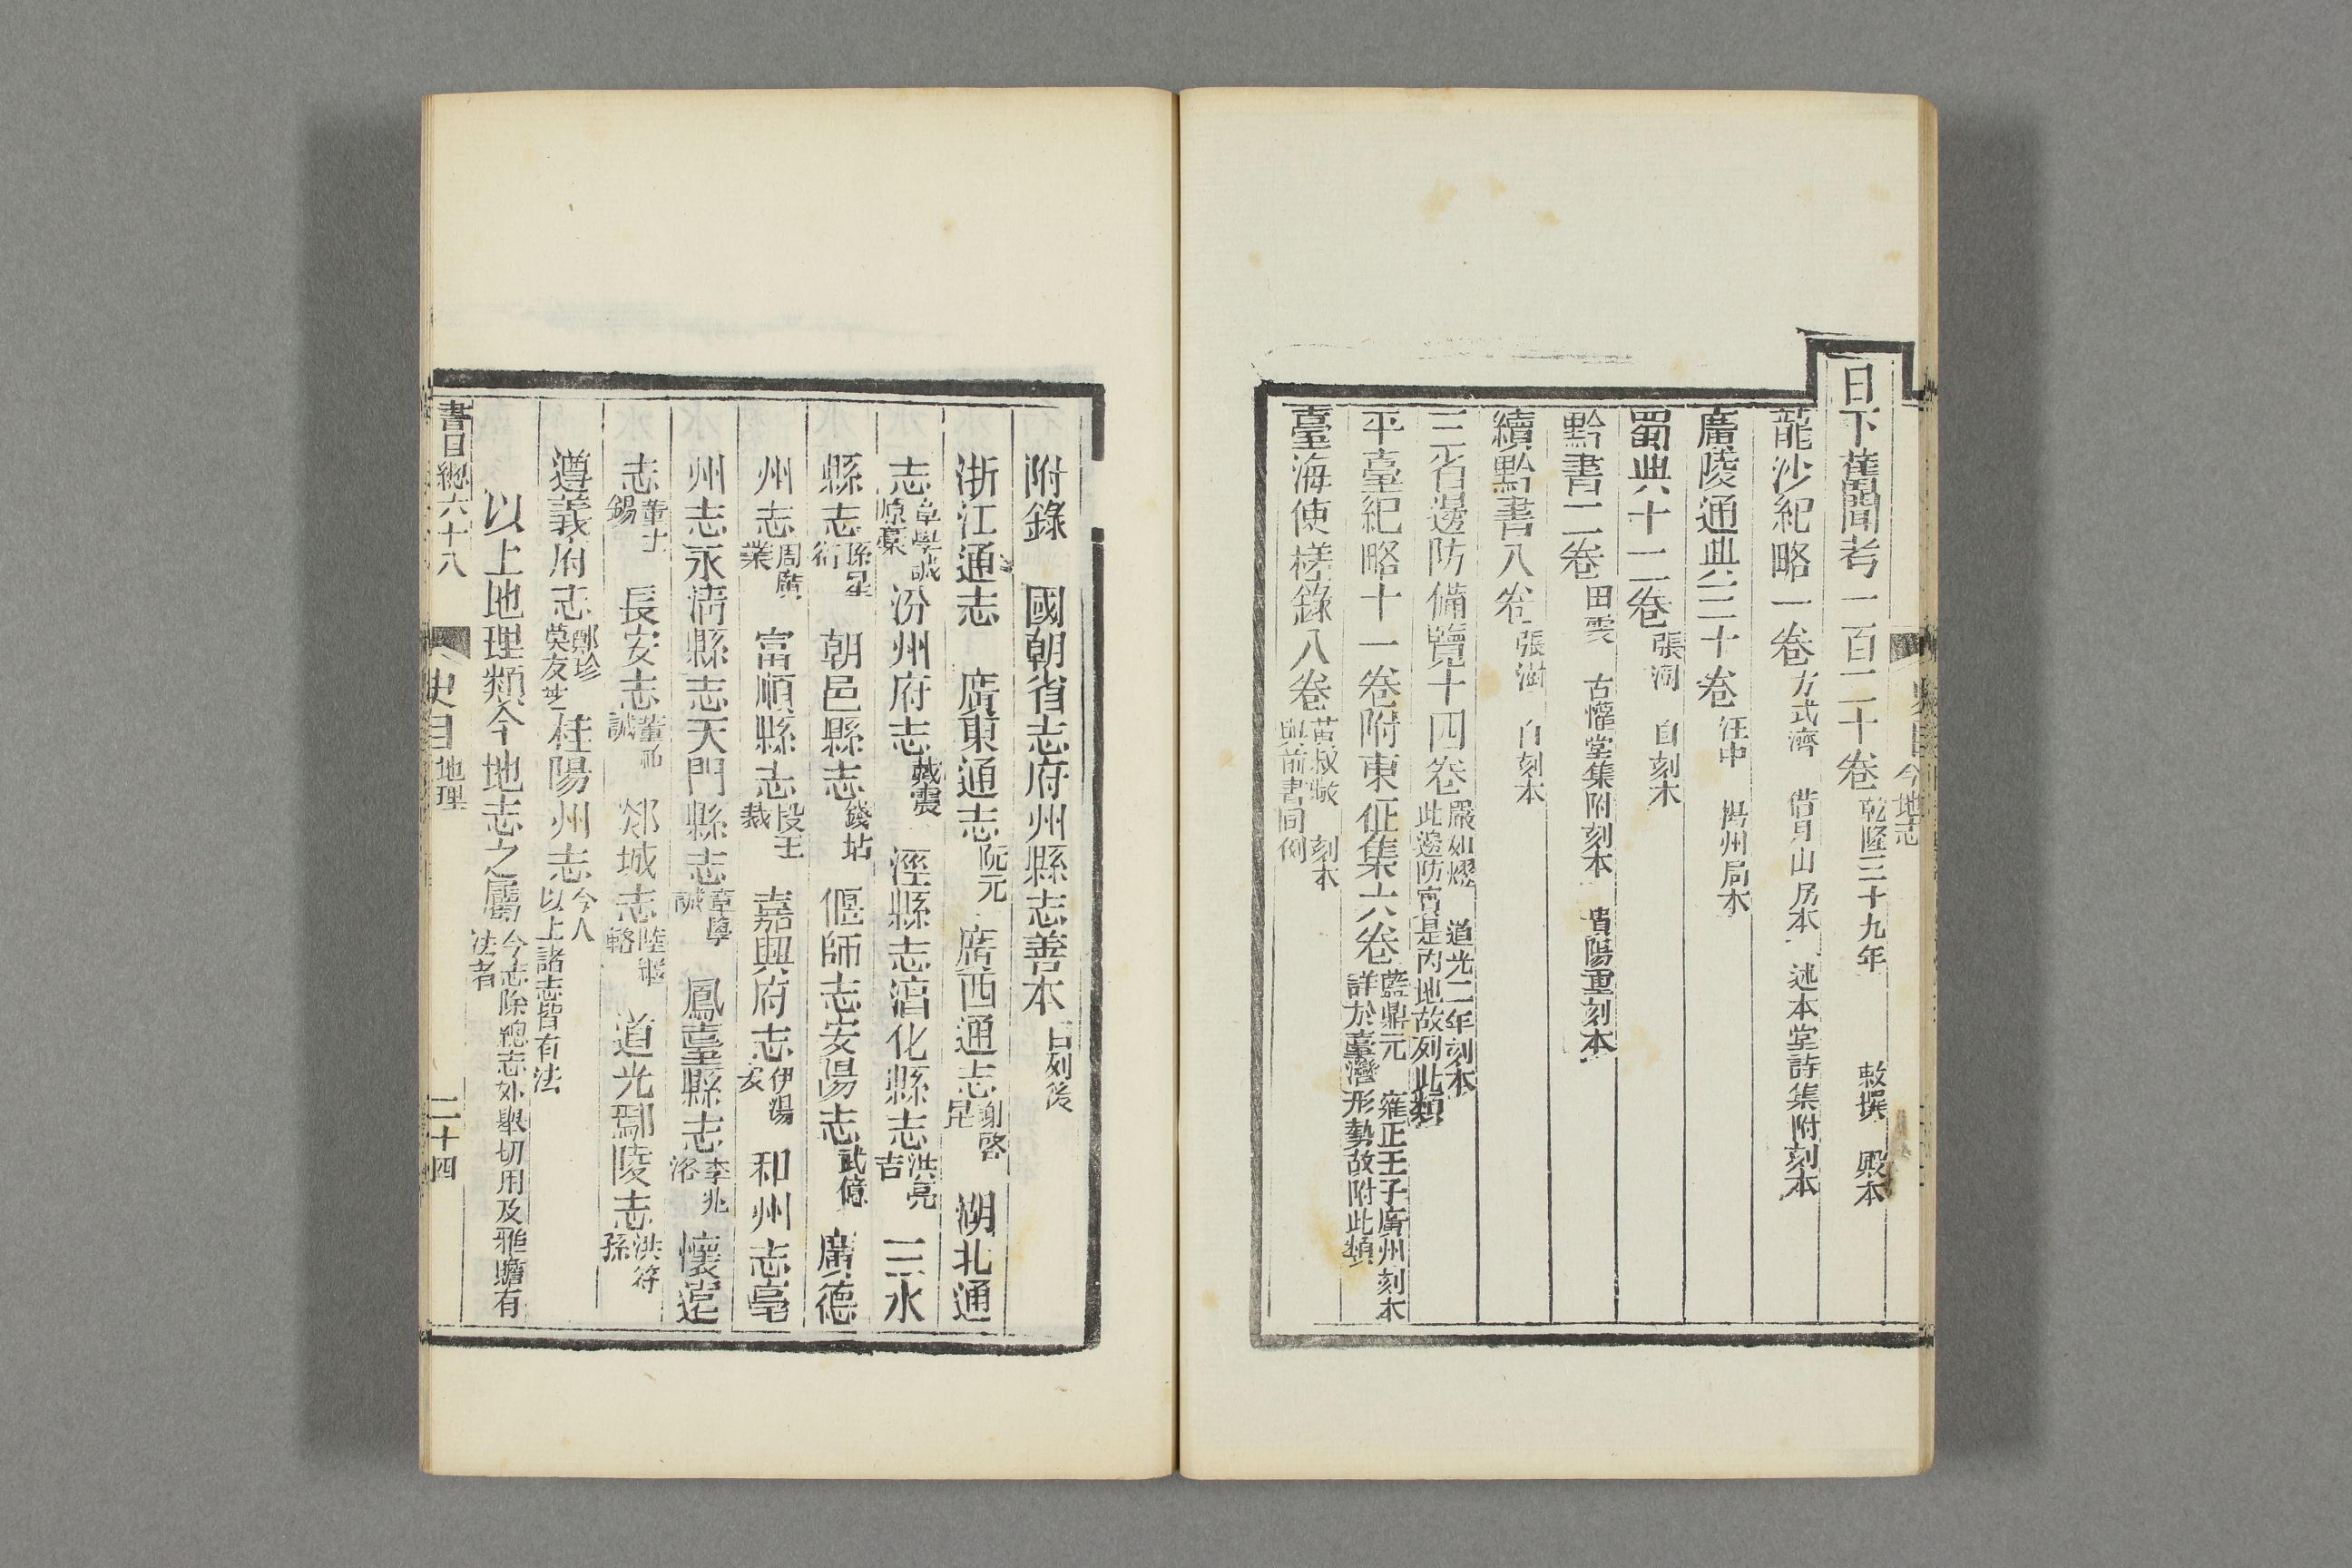 史目 今地志
日下舊聞考一百二十卷 乾隆三十九年 敕撰 殿本
龍沙紀略一卷 方式濟 借月山房本 述本堂詩集附刻本
廣陵通典三十卷 汪中 揚州局本
蜀典十二卷 張澍 自刻本
黔書二卷 田雯 古懽堂集附刻本 貴陽重刻本
續黔書八卷 張澍 自刻本
三省邊防備覽十四卷 嚴如熤 道光二年刻本 此邊防實是內地故列此類
平臺紀略十一卷附東征集六卷 藍鼎元 雍正壬子廣州刻本 詳於臺灣形勢故附此類
臺海使槎錄八卷 黃叔璥 刻本 與前書同例
附錄 國朝省志府州縣志善本 目列後
浙江通志 廣東通志 阮元 廣西通志 謝啓昆 湖北通
志 章學誠原稾 汾州府志 戴震 涇縣志淯化縣志 洪亮吉 三水
縣志 孫星衍 朝邑縣志 錢坫 偃師志安陽志 武億 廣德
州志 周廣業 富順縣志 段玉裁 嘉興府志 伊湯安 和州志亳
州志永淸縣志天門縣志 章學誠 鳳臺縣志 李兆洛 懷遠
志 董士錫 長安志 董祐誠 郯城志 陸繼輅 道光鄢陵志 洪符孫
遵義府志 鄭珍 莫友芝 桂陽州志 今人 以上諸志皆有法
以上地理類今地志之屬 今志除總志外舉切用及雅贍有法者
書目總六十八 史目 地理 二十四